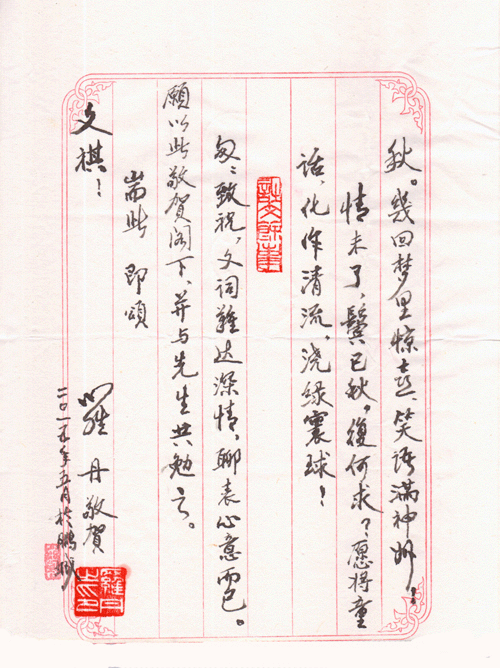 秋。幾回梦里惊喜,笑语满神州!
情未了,鬓已秋,復何求?愿将童
话,化作清流,浇绿寰球!
匆匆致祝,文词難达深情,聊表心意而已。
願以此敬贺阁下、并与先生共勉云。
耑此 即頌
文祺!
羅丹敬賀
二〇一五年五月於鹏城